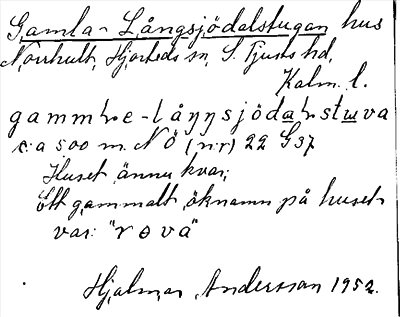 Gamla-Långsjödalstugan hus
Norrhult, Hjorteds sn, S. Tjusts hd,
Kalm. l.
gammɫe-låŋŋsjödaɫstuva
c:a 500 m NÖ (nr) 22 G37
Huset ännu kvar;
Ett gammalt öknamn på huset
var: "rova"
Hjalmar Andersson 1952.